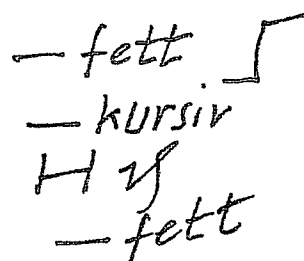 — fett
— kursiv
H
— fett